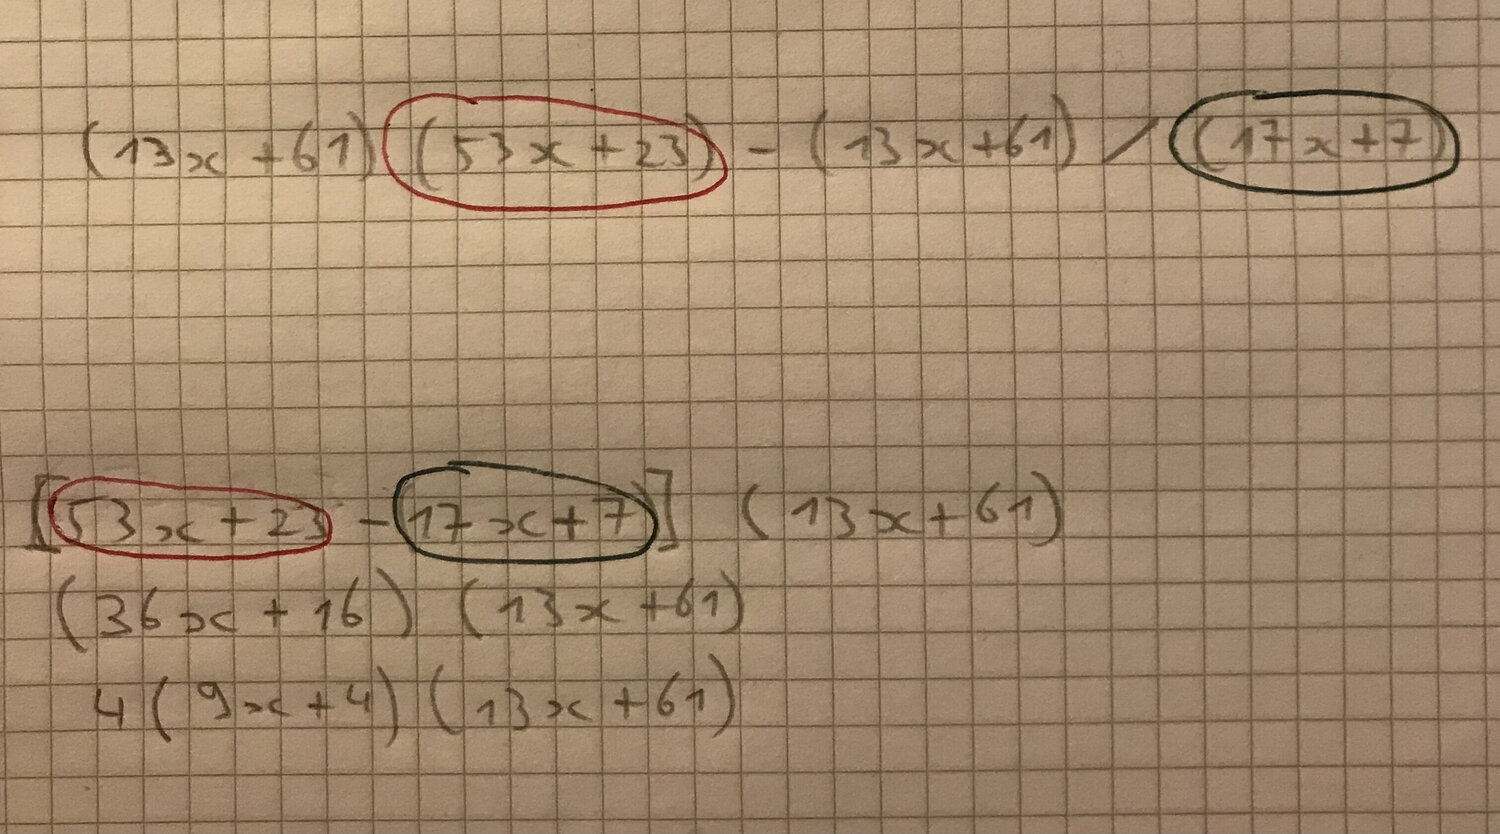 (13x + 61) (53x + 23) - (13x + 61) / (17x + 7)
[53x + 23 - (17x + 7)] (13x + 61)
(36x + 16) (13x + 61)
4 (9x + 4) (13x + 61)